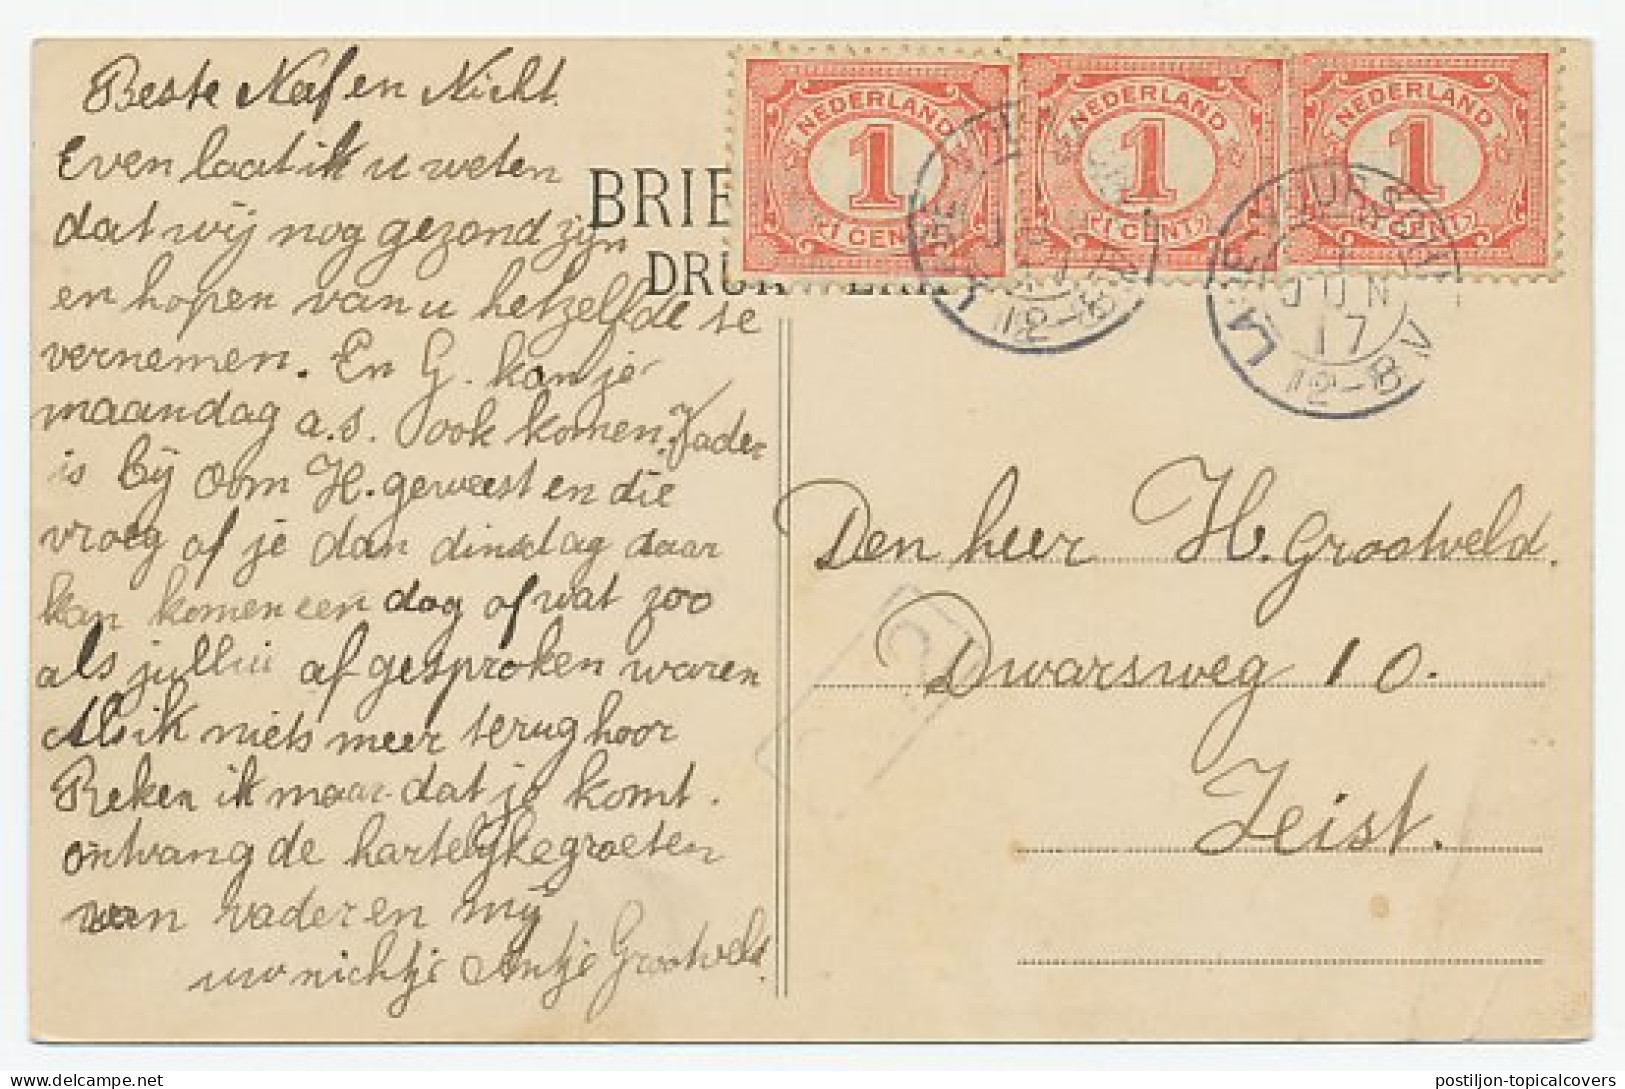 Beste Neef en Nicht.
Even laat ik u weten
dat wij nog gezond zijn
en hopen van u hetzelfde te
vernemen. En G. kan je
maandag a.s. ook komen. Vader
is bij Oom H. geweest en die
vroeg of je dan dinsdag daar
kan komen een dag of wat zoo
als jullui af gesproken waren
Als ik niets meer terug hoor
Reken ik maar dat je komt.
ontvang de hartelijke groeten
van vader en mij
uw nichtje Antje Grootveld.
BRIE
DRU
NEDERLAND
1
1 CENT
NEDERLAND
1
1 CENT
NEDERLAND
1
1 CENT
12-8V
JUN
17
12-8V
Den heer H. Grootveld.
Dwarsweg 10.
Zeist.
postiljon-topicalcovers